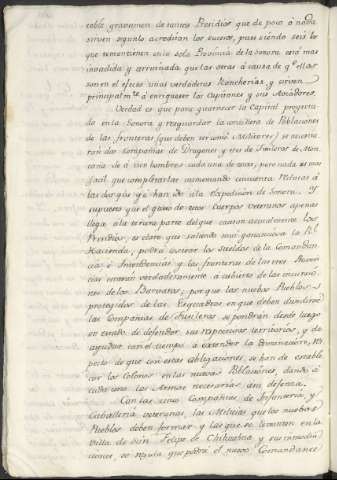 rable gravamen de tantos Presidios que de poco ó nada
sirven segun lo acreditan los sucesos, pues siendo seis los
que tenemos en la sola Provincia de la Sonora está mas
invadida y arruinada que las otras á causa de q.e ellas
son en el efecto unas verdaderas Rancherías, y sirven
principalm.te á enriquecer los Capitanes y sus Aviadores.
Verdad es que para guarnecer la Capital proyectada
en la Sonora y resguardar la cordillera de Poblaciones
de las fronteras (que deben ser como Militares) se necesitarán
dos Compañias de Dragones y tres de Fusileros de Montaña
de á cien hombres cada una de unas, pero nada es mas
facil que completarlas aumentando cincuenta Plazas á
las dos que ya han ido á la Expedicion de Sonora. Y
supuesto que el gasto de estos Cuerpos veteranos apenas
llega á la tercera parte del que causan anualmente los
Presidios, es claro que saliendo mui gananciosa la R.l
Hacienda, podrá costear los sueldos de la Comandancia
é Intendencias y las fronteras de las tres Provincias
estarán verdaderamente á cubierto de las incursiones
de los Barbaros, por que las nuebas Pueblas
protegidas de las Esquadras en que deben dividirse
las Compañias de Fusileros se pondrán desde luego
en estado de defender sus respectivos territorios, y de
ayudar con el tiempo á extender la dominacion, respecto
de que con estas obligaciones se han de establecer
los Colonos en las nuevas Poblaciones, dando á
cada uno las Armas necesarias á su defensa.
Con las cinco Compañias de Infanteria, y
Caballería veteranas, las Milicias que los nuebos
Pueblos deben formar y las que se levanten en la
Villa de San Felipe de Chihuahua y sus inmediaciones,
se regula que podrá el nuevo Comandante